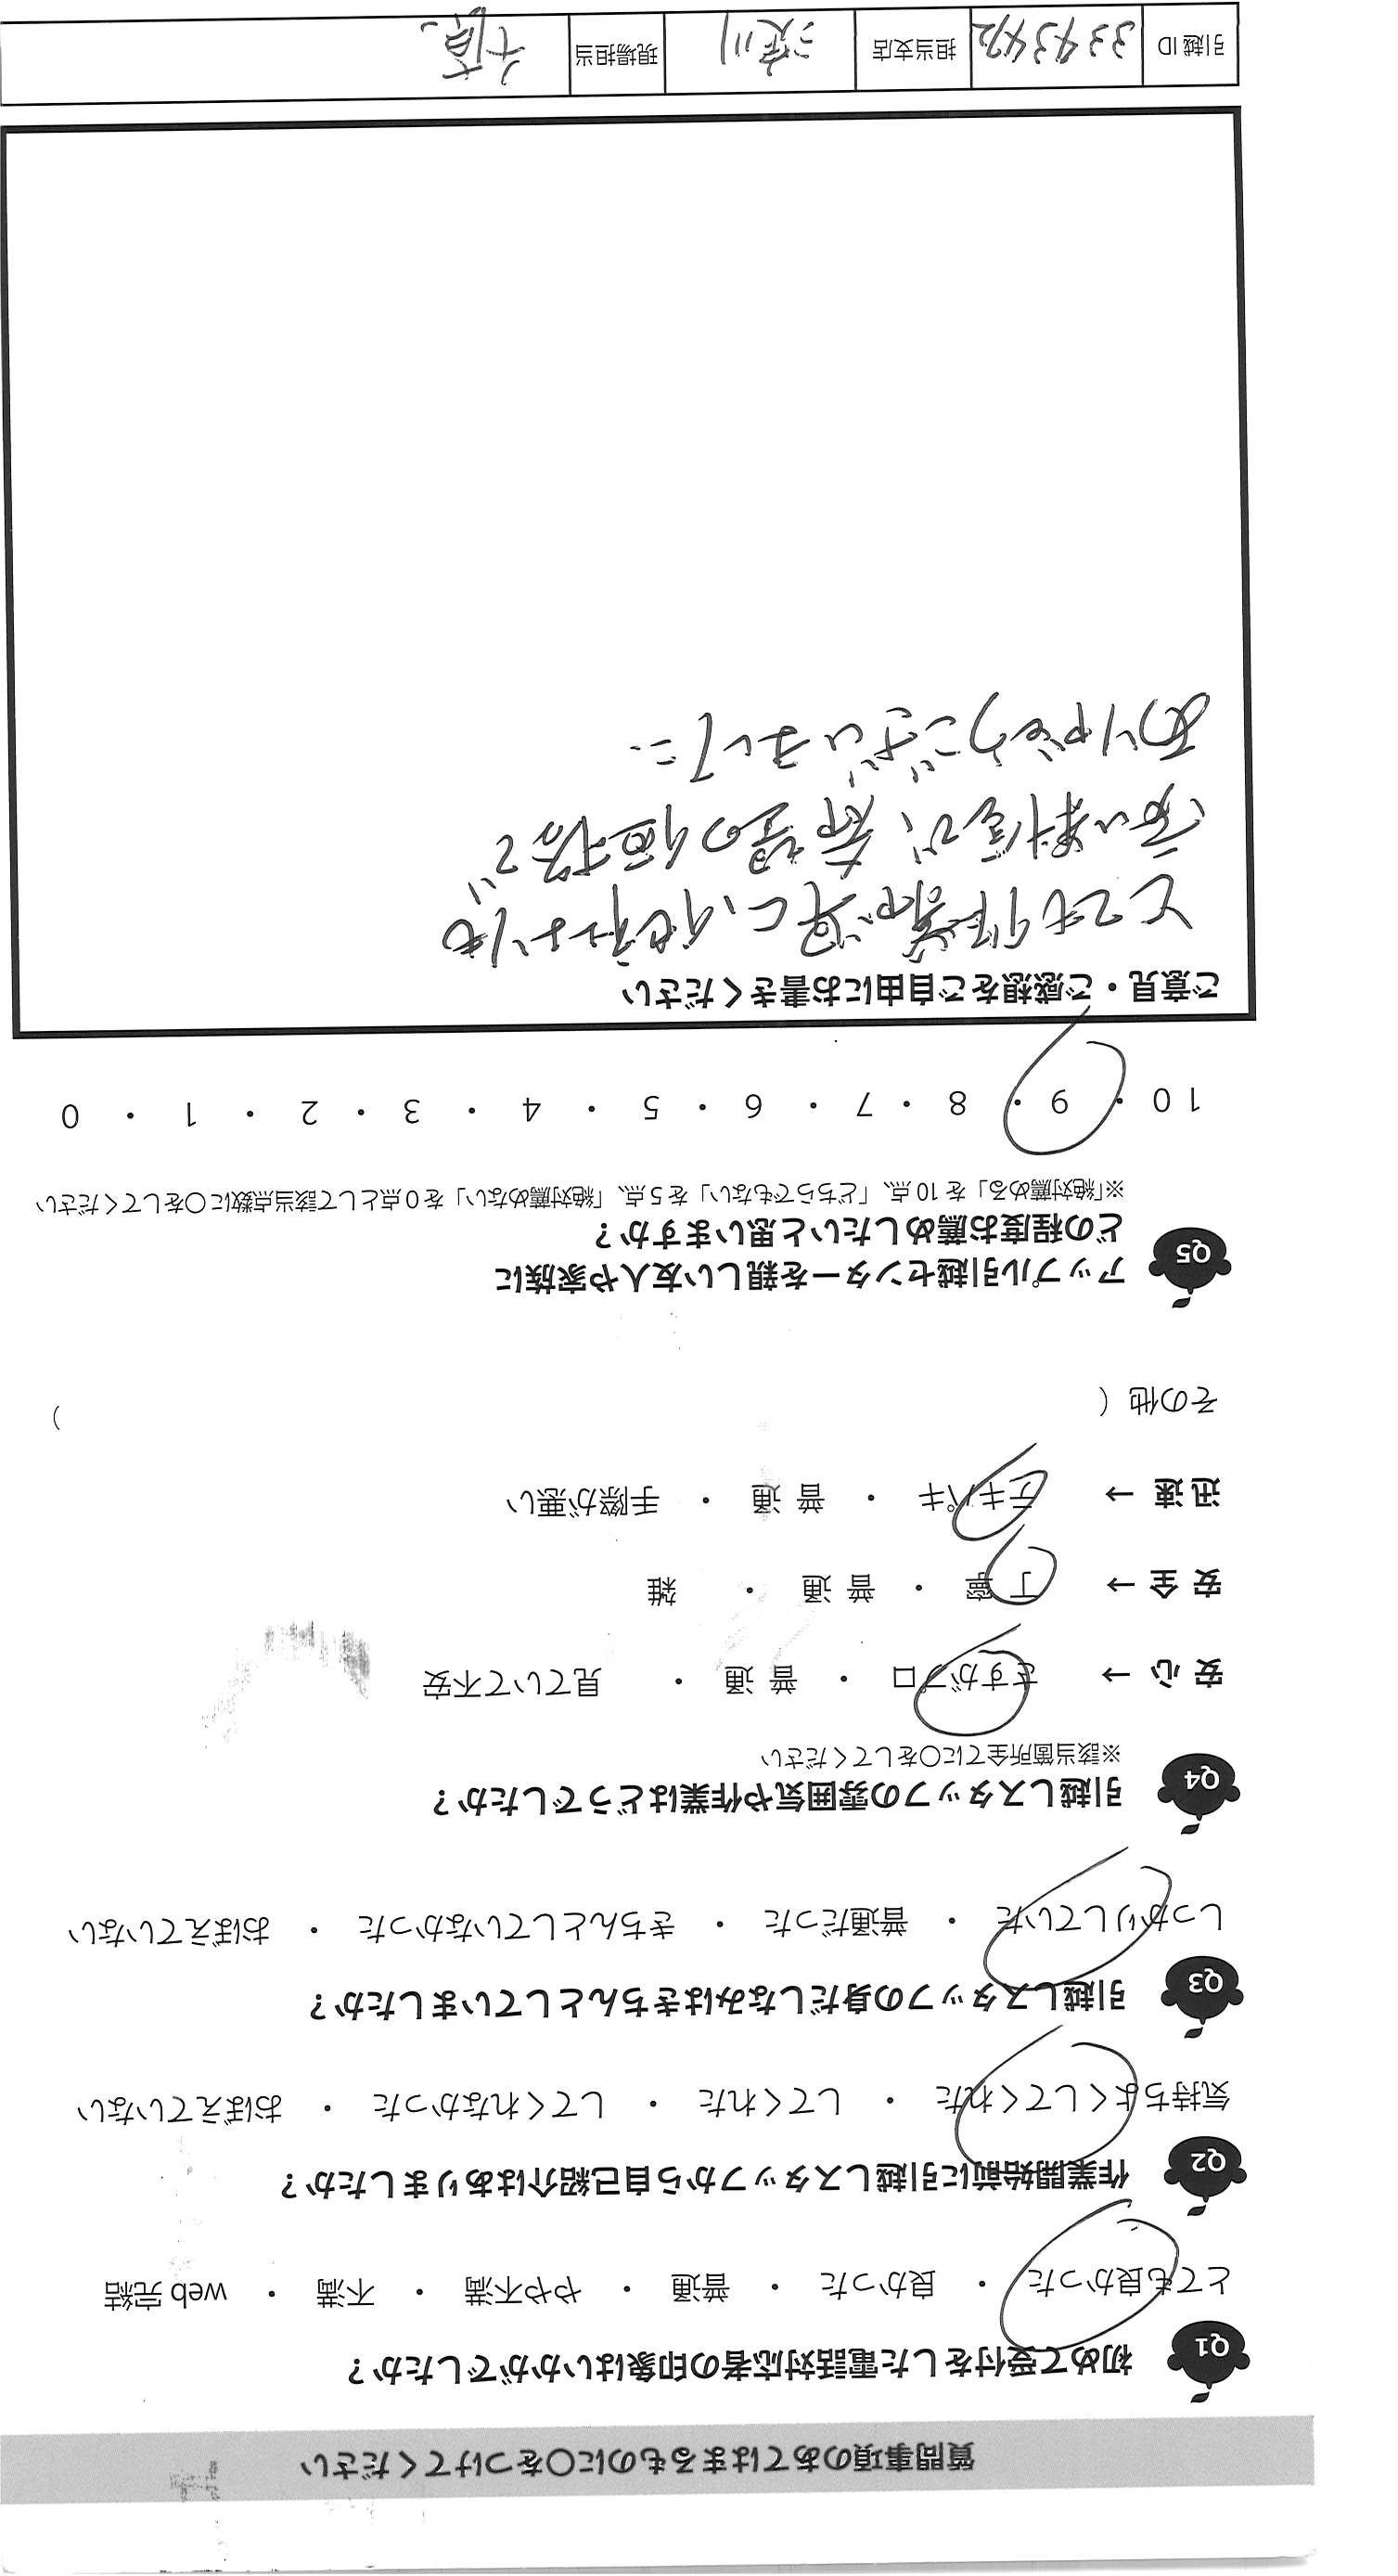 質問事項のあてはまるものに○をつけてください
Q1 初めて受付をした電話対応者の印象はいかがでしたか？
とても良かった ・ 良かった ・ 普通 ・ やや不満 ・ 不満 ・ web 完結
Q2 作業開始前に引越しスタッフから自己紹介はありましたか？
気持ちよくしてくれた ・ してくれた ・ してくれなかった ・ おぼえていない
Q3 引越しスタッフの身だしなみはきちんとしていましたか？
しっかりしていた ・ 普通だった ・ きちんとしていなかった ・ おぼえていない
Q4 引越しスタッフの雰囲気や作業はどうでしたか？
※該当箇所全てに○をしてください
安 心 → さすがプロ ・ 普 通 ・ 見ていて不安
安 全 → 丁 寧 ・ 普 通 ・ 雑
迅 速 → テキパキ ・ 普 通 ・ 手際が悪い
その他（ ）
Q5 アップル引越センターを親しい友人や家族に
どの程度お薦めしたいと思いますか？
※「絶対薦める」を 10 点、「どちらでもない」を 5 点、「絶対薦めない」を 0 点として該当点数に○をしてください
10 ・ 9 ・ 8 ・ 7 ・ 6 ・ 5 ・ 4 ・ 3 ・ 2 ・ 1 ・ 0
ご意見・ご感想をご自由にお書きください
とても作業が早く、他社よりも
安い料金が、希望の価格で
ありがとうございました。
引越 ID 3343442 担当支店 淀川 現場担当